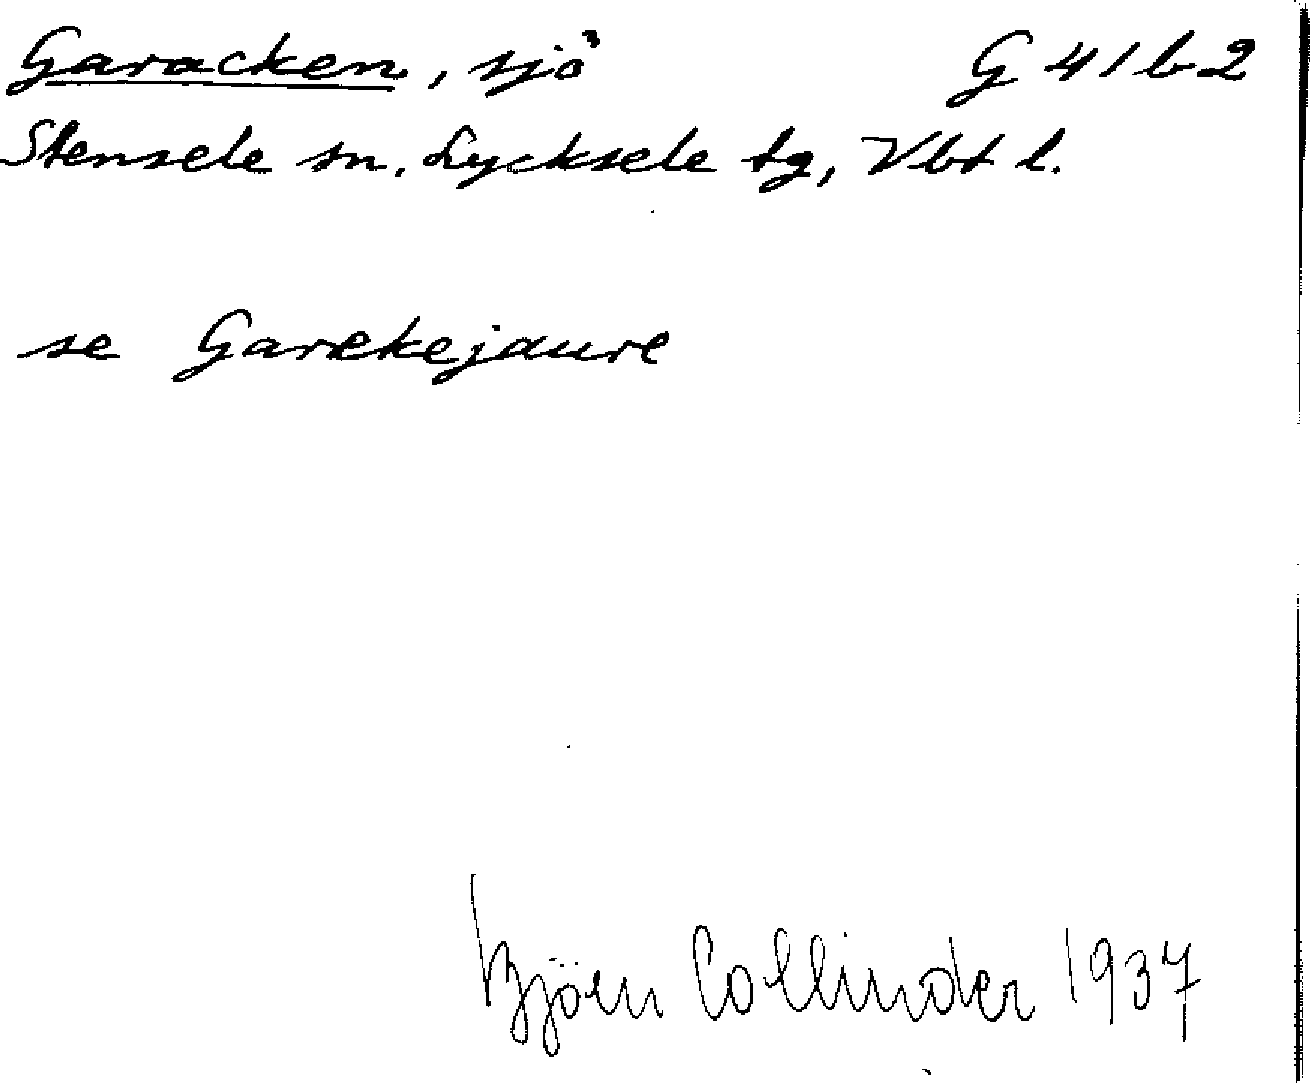 Garacken, sjö G 41 b 2
Stensele sn. Lycksele tg, Vbt l.
se Garekejaure
Björn Collinder 1937